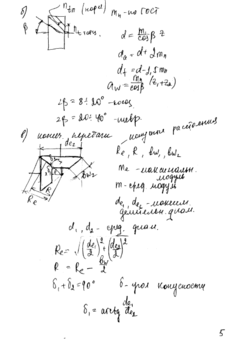 б)
m_n (норм) m_n - по ГОСТ
β
d = m_n/cosβ z
d_a = d + 2m_n
d_f = d - 2,5m_n
a_w = m_n/cosβ (z₁+z₂)
β = 8÷20° - косоз.
β = 20÷40° - шевр.
в) конич. передачи
R_e, R, b_w₁, b_w₂
m_e - максимальн. модуль
m - сред. модуль
d_e₁, d_e₂ - максим. делительн. диам.
d₁, d₂ - сред. диам.
R_e = √((d_e₁/2)² + (d_e₂/2)²)
R = R_e - b_w/2
δ₁ + δ₂ = 90° δ - угол конусности
δ₁ = arctg d_e₁/d_e₂
5